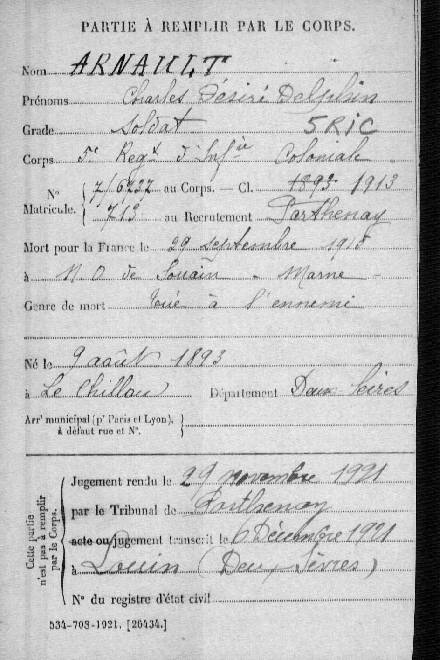 PARTIE À REMPLIR PAR LE CORPS.
Nom ARNAULT
Prénoms Charles Désiré Delphin
Grade Soldat 5 RIC
Corps 5e Regt d'Infie Coloniale
N° Matricule. 7/6232 au Corps. — Cl. 1893 1913
713 au Recrutement Parthenay
Mort pour la France le 29 septembre 1915
à N O de Souain - Marne -
Genre de mort tué à l'ennemi
Né le 9 août 1893
à Le Chillou Département Deux Sèvres
Arrt municipal (pr Paris et Lyon),
à défaut rue et N°.
Cette partie
n'est pas à remplir
par le Corps.
Jugement rendu le 29 novembre 1921
par le Tribunal de Parthenay
acte ou jugement transcrit le 6 Décembre 1921
à Louin (Deux Sèvres)
N° du registre d'état civil
534-708-1921. [26434.]